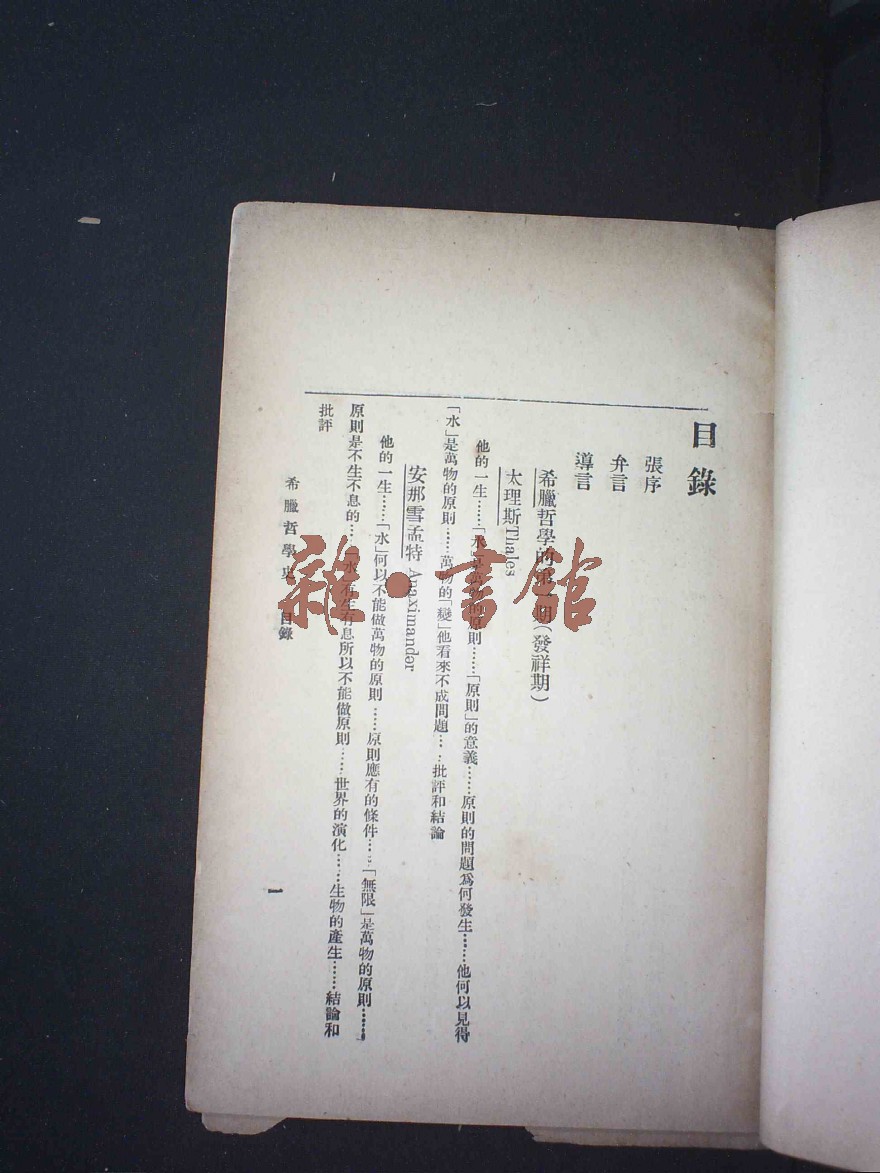 目錄
張序
弁言
導言
希臘哲學的第一期(發祥期)
太理斯Thales
他的一生……「水」是萬物的原則……「原則」的意義……原則的問題爲何發生……他何以見得
「水」是萬物的原則……萬物的「變」他看來不成問題……批評和結論
安那雪孟特 Anaximander
他的一生……「水」何以不能做萬物的原則……原則應有的條件……「無限」是萬物的原則……
原則是不生不息的……「水」有生有息所以不能做原則……世界的演化……生物的產生……結論和
批評
希臘哲學史 目錄
一
雜·書館